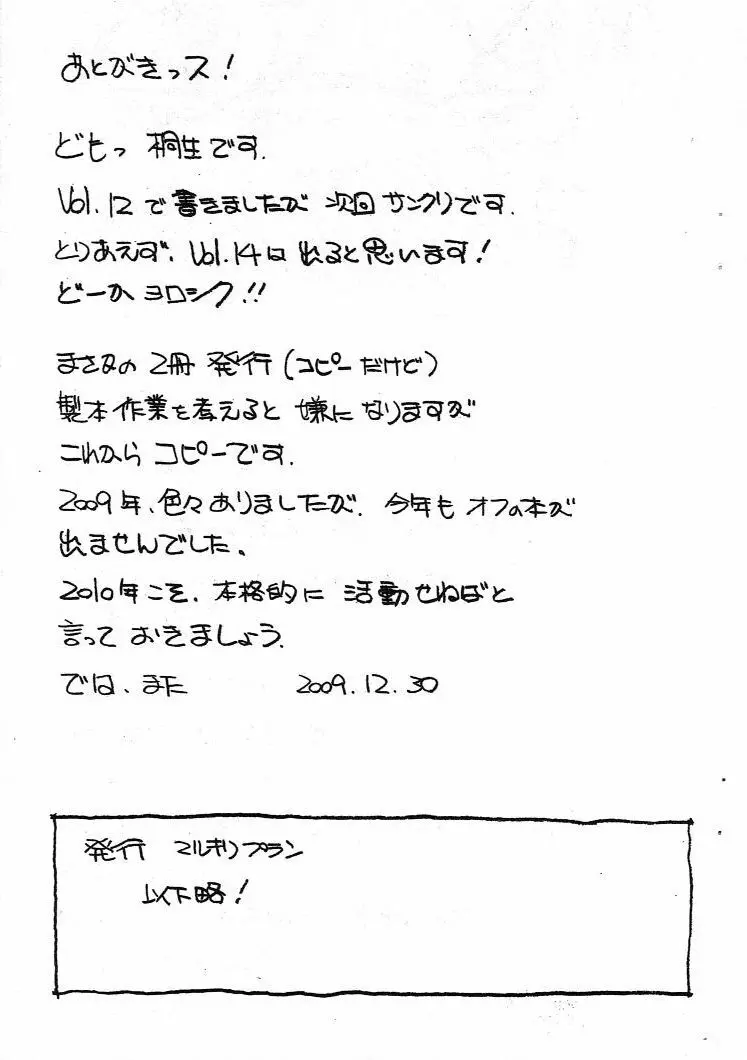 あとがきっス!
どもっ 桐生です.
Vol.12で書きましたが 次回 サンクリです.
とりあえず、Vol.14は出ると思います!
どーか ヨロシク!!
まさかの 2冊 発行(コピーだけど)
製本作業を考えると 嫌に なりますが
これから コピーです.
2009年、色々ありましたが. 今年も オフの本が
出ませんでした、
2010年こそ、本格的に 活動せねばと
言って おきましょう.
では、また 2009.12.30
発行 マルキリプラン
以下略!